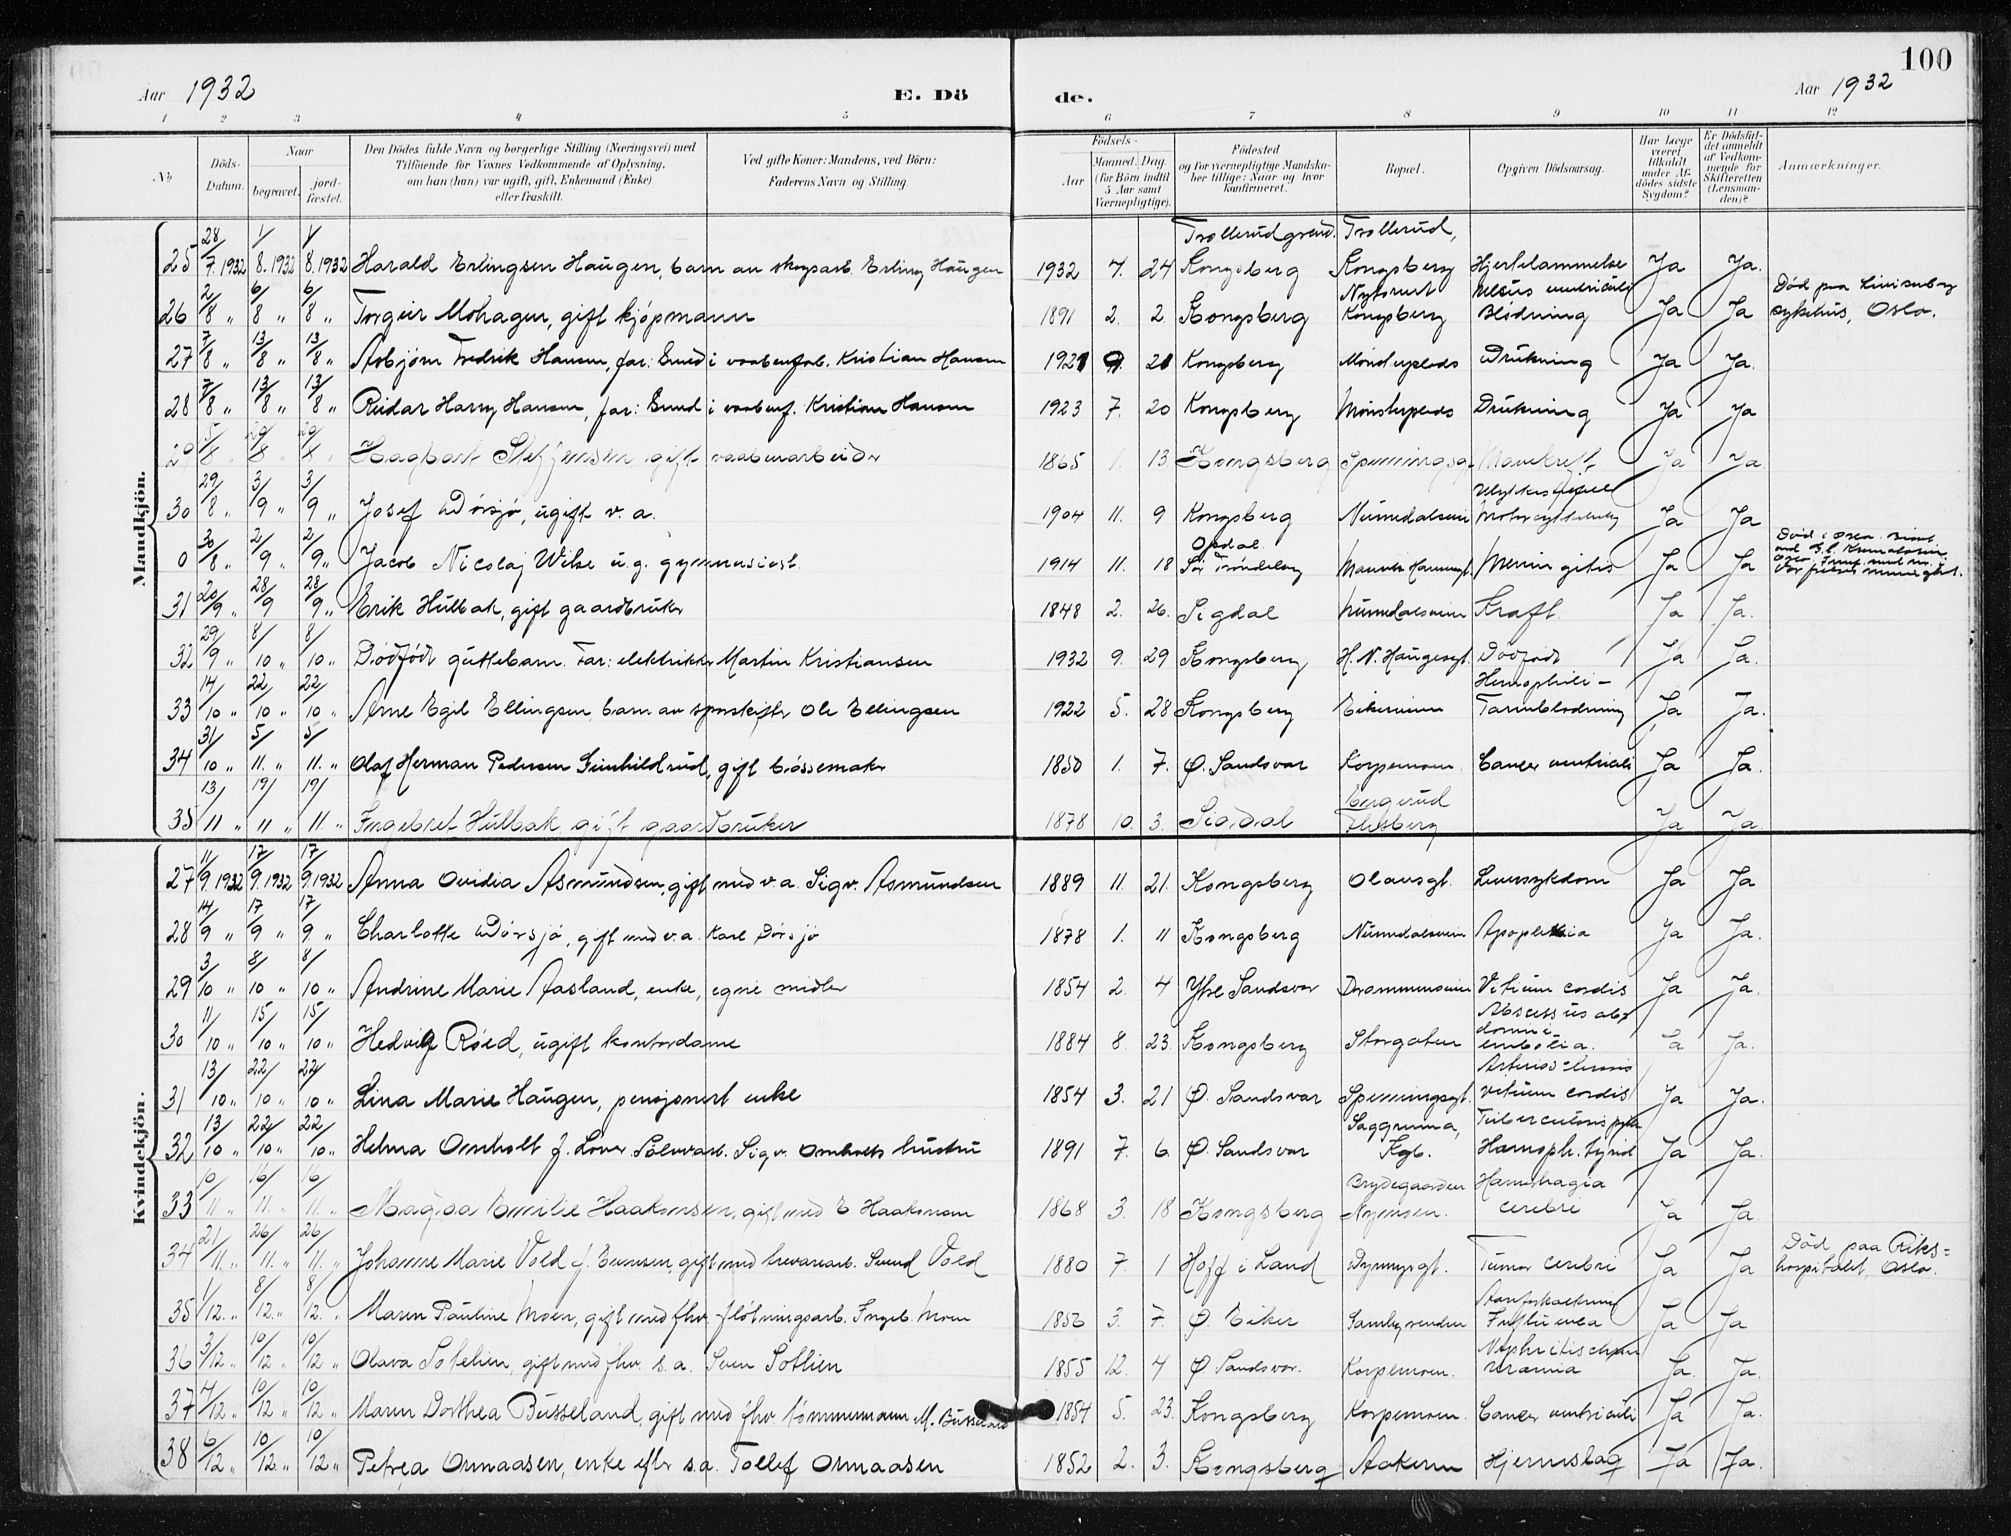 100
Aar 1932 E. Dö de. Aar 1932
1 2 3 4 5 6 7 8 9 10 11 12
No Döds-Datum. Naar begravet. jord-fæstet. Den Dödes fulde Navn og borgerlige Stilling (Næringsvei) med Tilföiende for Voxnes Vedkommende af Oplysning, om han (hun) var ugift, gift, Enkemand (Enke) eller fraskilt. Ved gifte Koner: Mandens, ved Börn: Faderens Navn og Stilling. Födsels- Aar Maaned. Dag. (for Börn indtil 5 Aar samt Værnepligtige). Födested og for værnepligtige Mandsku-ber tillige: Naar og hvor konfirmeret. Bopæl. Opgiven Dödsaarsag. Har Læge været tilkaldt under Af-dödes sidste Sygdom? Er Dödsfal-det anmeldt af Vedkom-mende for Skifteretten (Lensman-den)? Anmærkninger.
Mandkjön.
25 28/7. 1932 1/8. 1932 1/8. 1932 Harald Erlingsen Haugen, barn av skogsarb. Erling Haugen 1932 7. 24 Trollerudgrend. Kongsberg Trollerud, Kongsberg Hjertelammelse Ja Ja.
26 2/8 " 6/8 " 6/8 " Torgeir Mohagen, gift kjøpmann 1891 2. 2. Kongsberg Nytorvet Kongsberg Ulcus ventriculi Blødning Ja Ja Død paa Lovisenberg sykehus, Oslo.
27 7/8 " 13/8 " 13/8 " Asbjørn Fredrik Hansen, far: Smed i vaabenfab. Kristian Hansen 1921 9. 21 Kongsberg Drukning Ja Ja.
28 7/8 " 13/8 " 13/8 " Reidar Harry Hansen, far: Smed i vaabenf. Kristian Hansen 1923 7. 20 Kongsberg Drukning Ja Ja
29 5/8 " 20/8 " 20/8 " Hagbart Steffensen gift vaabenarbeider 1865 1. 13 Kongsberg Mavekreft Ja Ja.
30 29/8 " 3/9 " 3/9 " Josef Dørsjø, ugift v. a. 1904 11. 9 Kongsberg Numedalsveien Ja Ja
0 30/8 " 2/9 " 2/9 " Jacob Nicolaj Wilse u.g. gymnasiast. 1914 11. 18 Opdal Sør Trøndelag Meningitis Ja Ja
31 20/9 " 28/9 28/9 " Erik Hulbak, gift gaardbruker 1848 2. 26. Sigdal Numedalsveien Kræft. Ja Ja.
32 29/9 " 8/10 " 8/10 " Dødfødt guttebarn. Far: elektriker Martin Kristiansen 1932 9. 29 Kongsberg H. N. Haugesgt. Dødfødt Ja Ja.
33 14/10 " 22/10 " 22/10 " Arne Egil Ellingsen barn av sporskifter Ole Ellingsen 1922 5. 28 Kongsberg Eikerveien Hemophili - Tarmblødning Ja Ja.
34 31/10 " 5/11. " 5/11. " Olaf Herman Pedersen Gunhildrud, gift bøssemaker 1850 1. 7. Ø. Sandsvær Korpemoen. Cancer ventriculi Ja Ja.
35 13/11 " 19/11 " 19/11. " Ingebret Hulbak gift gaardbruker 1878 10. 3. Sigdal Bergerud Flesberg Ja Ja.
Kvindekjön.
27 11/9. 1932 17/9. 1932 17/9. 1932 Anna Ovidia Asmundsen, gift med v. a. Sigv. Asmundsen 1889 11. 21. Kongsberg Olavsgt. Leversykdom Ja Ja
28 14/9 " 17/9 " 17/9 " Charlotte Dørsjø, gift med v. a. Karl Dørsjø 1878 1. 11 Kongsberg Numedalsveien Apoplexia Ja Ja.
29 3/10 " 8/10 " 8/10 " Andrine Marie Aasland, enke, egne midler 1854 2. 4 Ytre Sandsvær Drammensveien Vitium cordis Ja Ja.
30 11/10 " 15/10 " 15/10 " Hedvig Røed, ugift kontordame 1884 8. 23. Kongsberg Storgaten Abscessus abdomini embolia. Ja Ja.
31 13/10 " 22/10 " 22/10 " Lina Marie Haugen, pensjonert enke 1854 3. 21 Ø. Sandsvær Spenningsgt. vitium cordis Ja Ja.
32 13/10 " 22/10 " 22/10 " Helma Omholt f. Lover Sølvarb. Sigv. Omholts hustru 1891 7. 6. Ø. Sandsvær Saggrenna, Kgb. Ja Ja.
33 10/11 " 16/11. " 16/11. " Magda Emilie Haakonsen, gift med E Haakonsen 1868 3. 18 Kongsberg Brydegaarden Hæmorhagia cerebre Ja Ja.
34 21/11. " 26/11. " 26/11. " Johanne Marie Vold f. Evensen, gift med Svend Vold 1880 7. 1 Hoff i Land Tumor cerebri Ja Ja Død paa Riks-hospitalet, Oslo.
35 1/12. " 8/12. " 8/12. " Maren Pauline Moen, gift med fhv. fløtningsarb. Ingeb. Moen 3. 7. Ø. Eiker Influenca Ja Ja
36 3/12 " 10/12 " 10/12 " Olava Sotelien, gift med fhv. s. a. Sven Sotlien 1855 12. 4 Ø Sandsvær. Korpemoen. uræmia Ja. Ja.
37 4/12 " 10/12 " 10/12 " Maren Dorthea Busseland, gift med fhv. tømmermann M. Busseland 1854 5. 23. Kongsberg Korpemoen. Cancer ventriculi Ja Ja.
38 6/12 " 10/12. " 10/12 " Petrea Ormaasen, enke efter s.a. Tollef Ormaasen 1852 2. 3. Kongsberg Aakeren Hjerneslag Ja Ja.